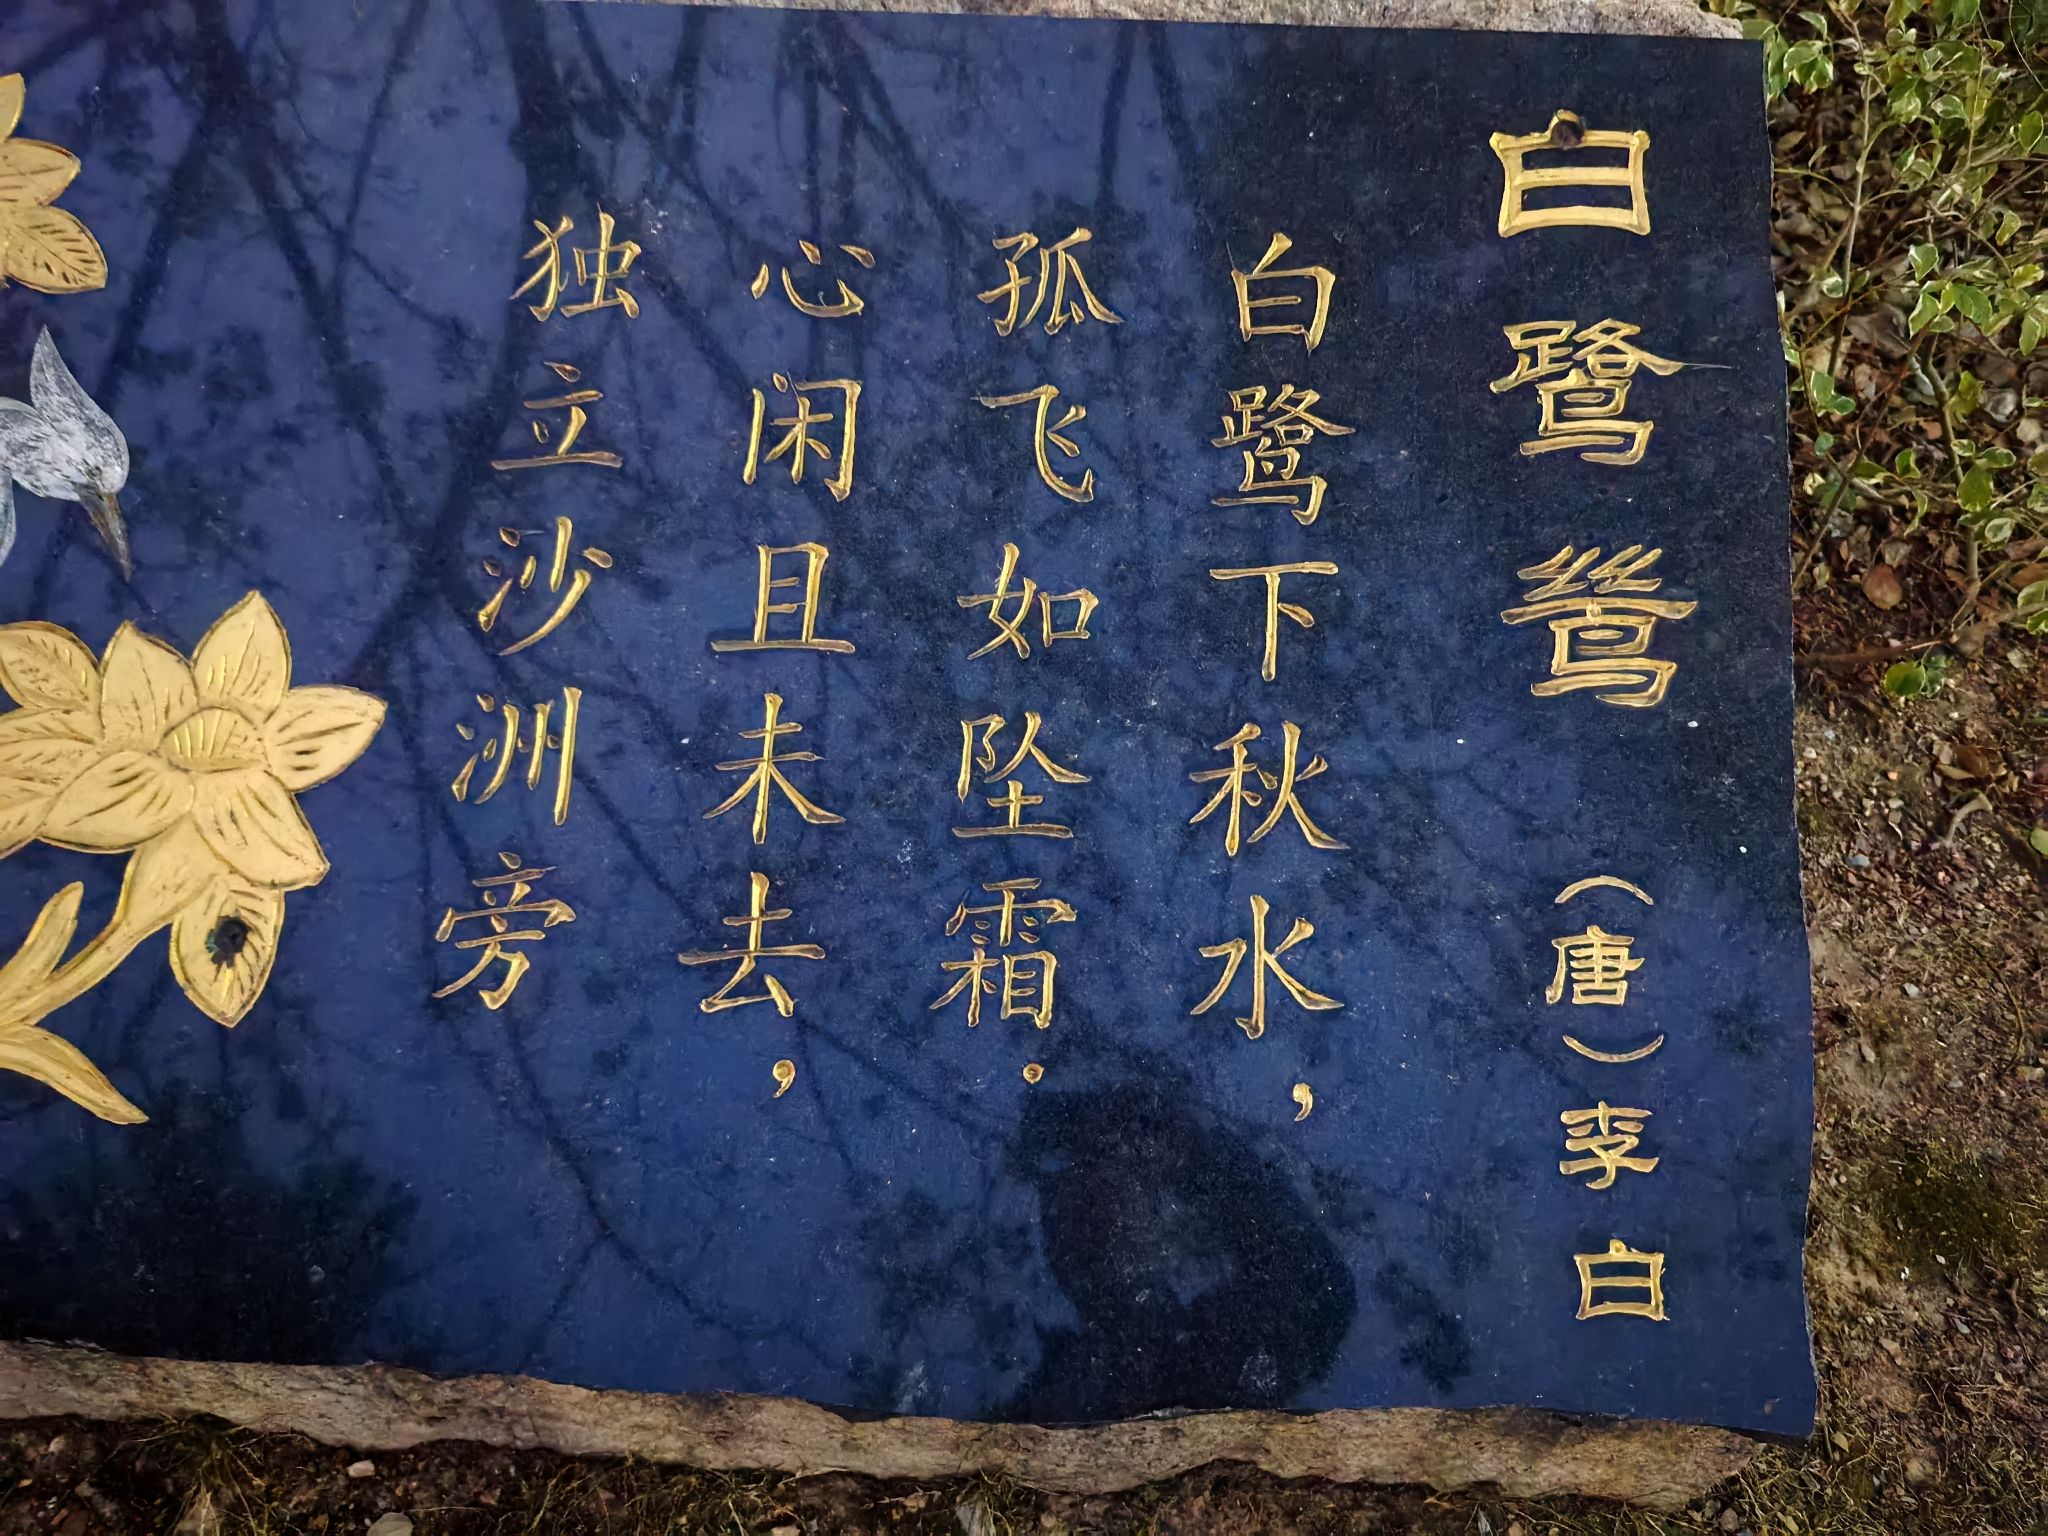 白鹭鸶 （唐）李白
白鹭下秋水，
孤飞如坠霜.
心闲且未去，
独立沙洲旁